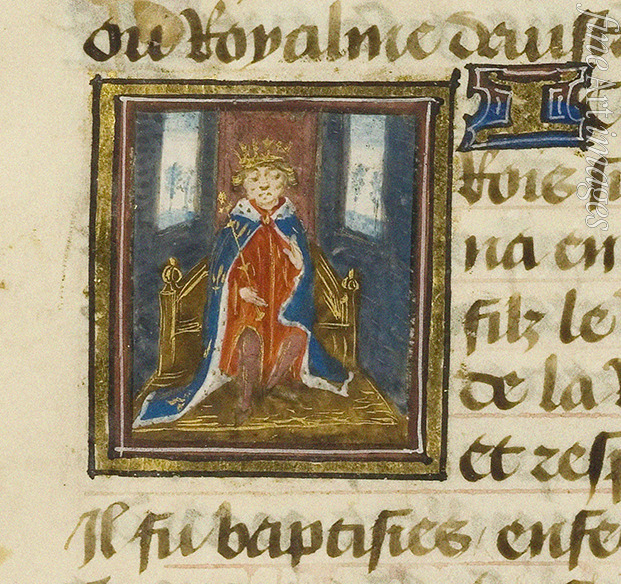 ou Royalme deuss
Rois
na en
filz le
de la
et resp
Il fu baptisies enfe
fine art images